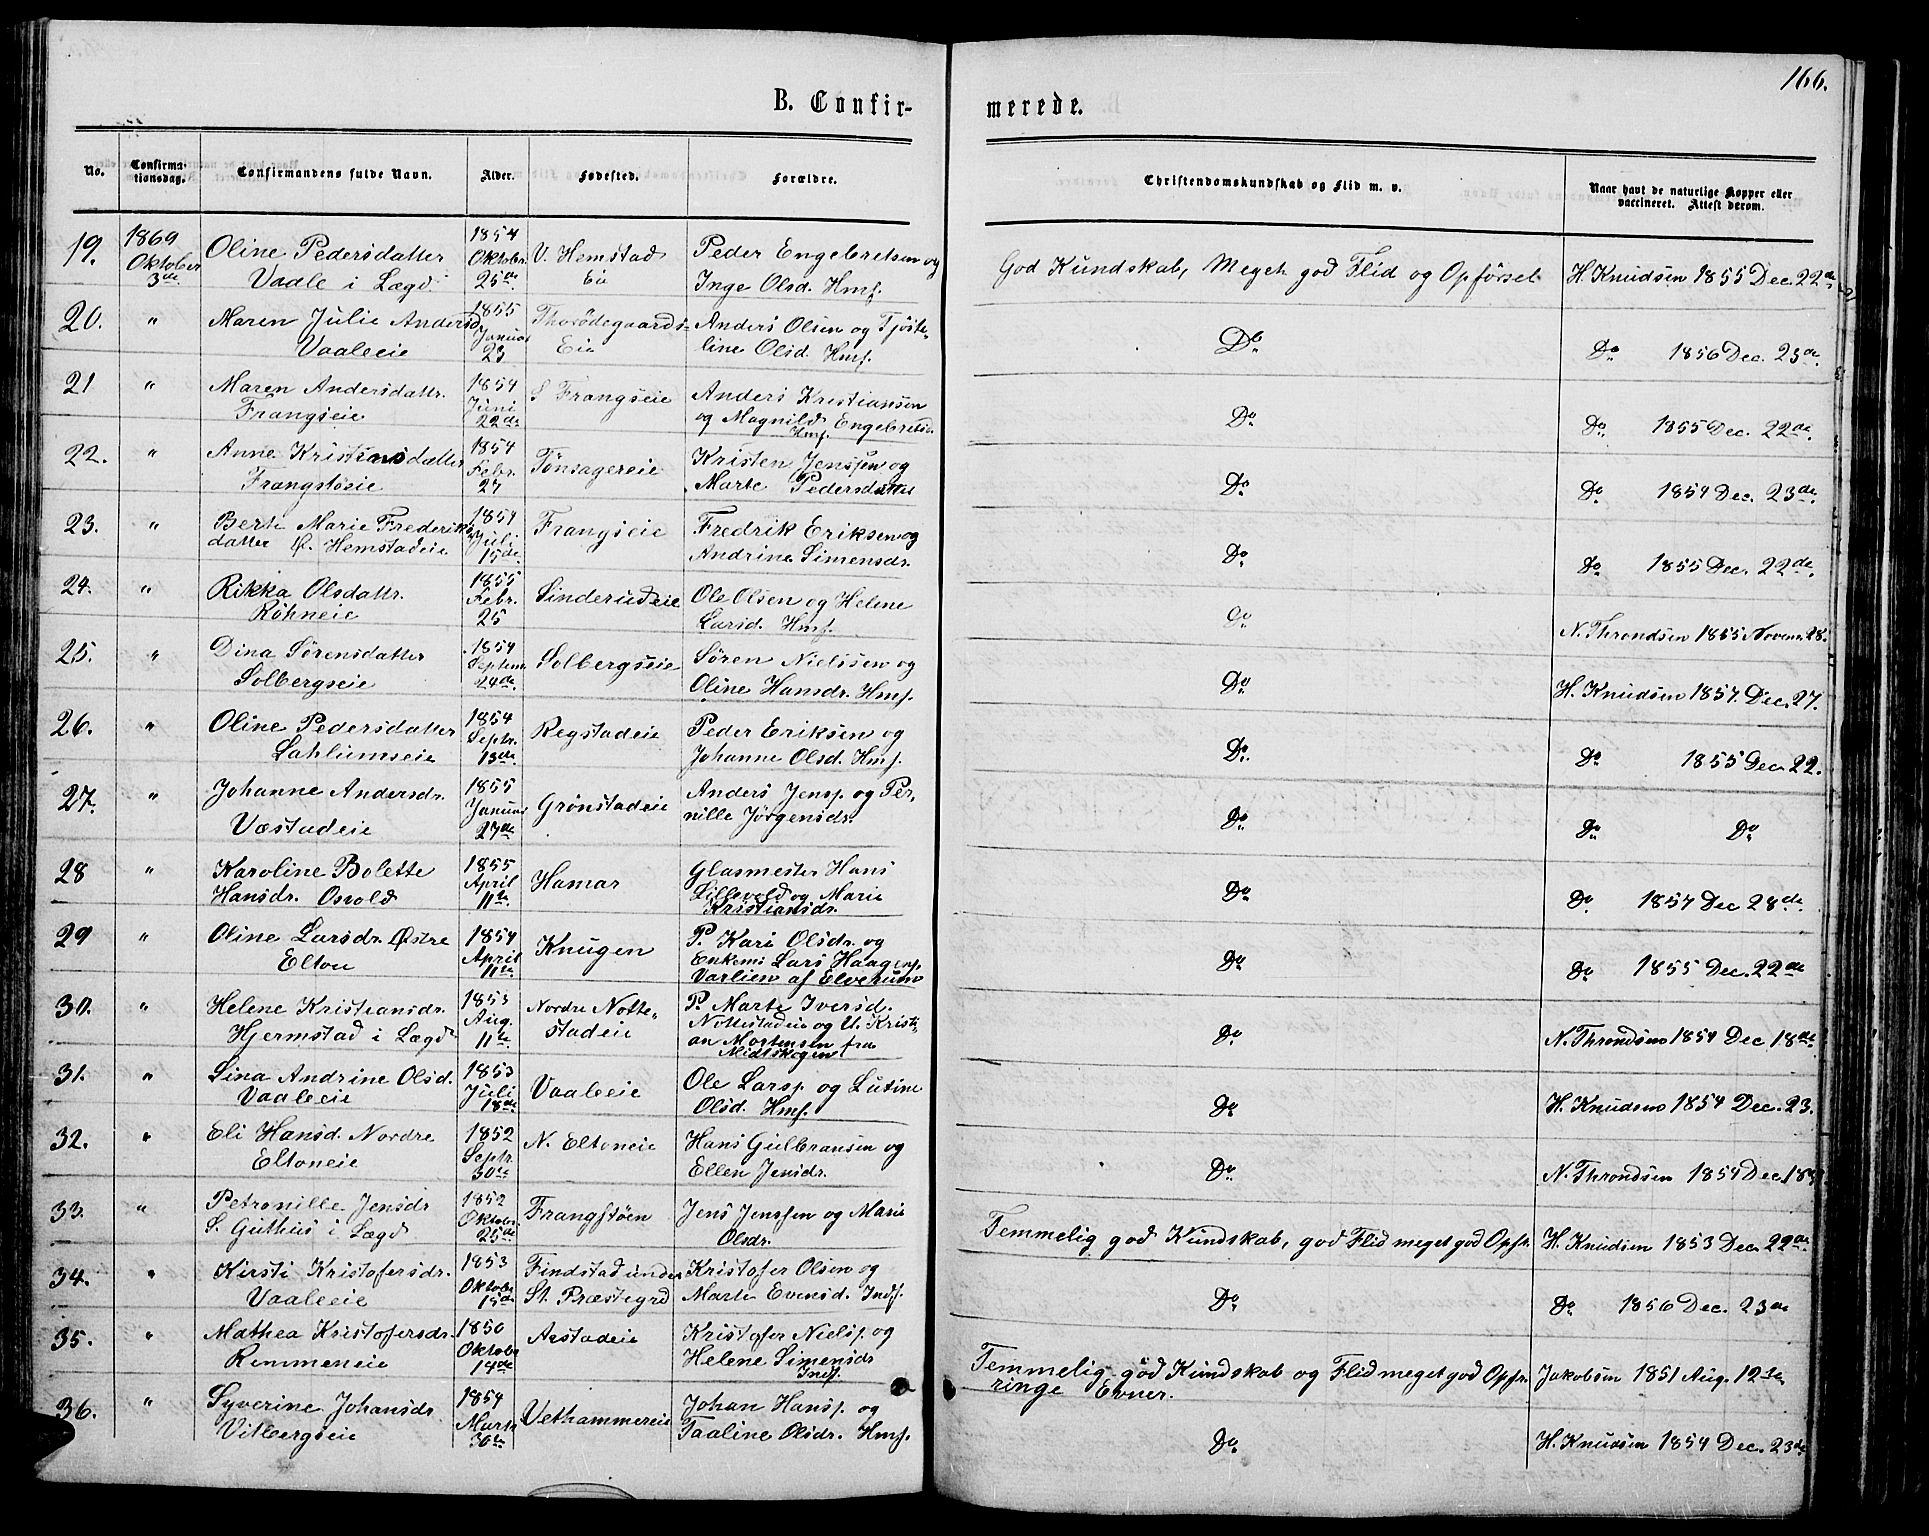 166.
B. Confirmerede.
No. Confirmationsdag. Confirmandens fulde Navn. Alder. Fødested. Forældre. Christendomskundskab og Flid m. v. Naar havt de naturlige Kopper eller vaccineret. Attest derom.
19. 1869 Oktober 3de Oline Pedersdatter Vaale i Lægd 1854 Oktobr. 25de V. Hemstad Eie Peder Engebretsen og Inge Olsd. Hmf. God Kundskab, Meget god Flid og Opførsel H. Knudsen 1855 Dec. 22de
20. " Maren Julie Andersd. Vaaleeie 1855 Januar 23 Thorødegaards-Eie Anders Olsen og Tjøste-line Olsd. Hmf. Do Do 1856 Dec. 23de
21 " Maren Andersdattr. Frangseie 1854 Juni 22de S Frangseie Anders Kristiansen og Magnild Engebretsd. Hmf. Do Do 1855 Dec. 22de
22. " Anne Kristinsdatter Frangstøeie 1854 Febr. 27 Tønsagereie Kristen Jenssen og Marte Pedersdatter Do Do 1854 Dec. 23de
23. " Berte Marie Frederiks datter Ø. Hemstadeie 1854 Juli 15de Frangseie Fredrik Eriksen og Andrine Simensdr. Do Do 1855 Dec. 22de
24. " Rikka Olsdattr. Røhneie 1855 Febr. 25 Sinderudeie Ole Olsen og Helene Larsd. Hmf. Do N. Throndsen 1855 Novem. 28.
25. " Dina Sørensdatter Solbergseie 1854 Septem. 24de Solbergseie Søren Nielssen og Oline Hansdr. Hmf. Do H. Knudsen 1857 Dec. 27.
26. " Oline Pedersdatter Sahlumseie 1854 Septr. 13de Regstadeie Peder Eriksen og Johanne Olsd. Hmf. Do Do 1855 Dec. 22.
27. " Johanne Andersdr. Væstadeie 1855 Januar 27de Grønstadeie Anders Jensp. og Per-nille Jørgensdr. Do Do Do
28 " Karoline Bolette Hansdr. Osvold 1855 April 11te Hamar Glasmester Hans Lillevold og Marie Kristiansdr. Do Do 1857 Dec 28de
29 " Oline Larsdr. Østre Elton 1854 April 11te Knugen P. Kari Olsdr. og Enkem. Lars Haagens. Varlien af Elverum Do Do 1855 Dec. 22de
30. " Helene Kristiansdr. Hjermstad i Lægd 1853 Aug. 11te Nordre Notte-stadeie P. Marte Iversd. Nottestadeie og U. Kristi-an Mortensen fra Midtskogen Do N. Throndsen 1854 Dec 18de
31. " Sina Andrine Olsd. Vaaleeie 1853 Juli 18de Vaaleeie Ole Larsp. og Lutine Olsd. Hmf. Do H. Knudsen 1854 Dec. 23.
32. " Eli Hansd. Nordre Eltoneie 1852 Septr. 30te N. Eltoneie Hans Gulbransen og Ellen Jensdr. Do N. Throndsen 1854 Dec. 18
33. " Petronille Jensdr S. Guthus i Lægd 1852 Oktobr. 25de Frangstøen Jens Jenssen og Marie Olsdr. Temmelig god Kundskab, god Flid meget god Opfr. H. Knudsen 1853 Dec. 22de
34. " Kirsti Kristofersdr. Vaaleeie 1853 Oktober 15de Findstad under St. Præstegrd Kristofer Olsen og Marte Evensd. Indf. Do Do 1856 Dec. 23de
35. " Mathea Kristofersdr. Remmeneie 1850 Oktobr 14de Arstadeie Kristofer Nielsp. og Helene Simensdr Indf. Temmelig god Kundskab og Flid meget god Opfr. ringe Evner. Jakobsen 1851 Aug. 12te
36. " Syverine Johansdr. Vilbergseie 1854 Marts 30te Vethammereie Johan Hansp. og Taaline Olsdr. Hmf. Do H. Knudsen 1854 Dec. 23de